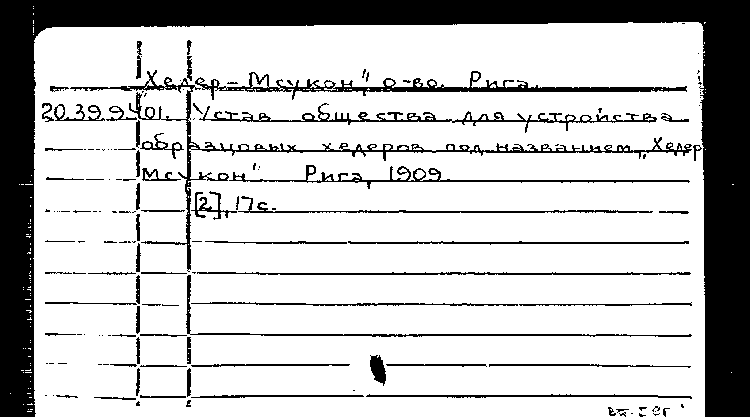 "Хедер-Мсукон", о-во. Рига.
20.39.9.401. Устав общества для устройства
образцовых хедеров под названием „Хедер
Мсукон". Рига, 1909.
[2], 17с.